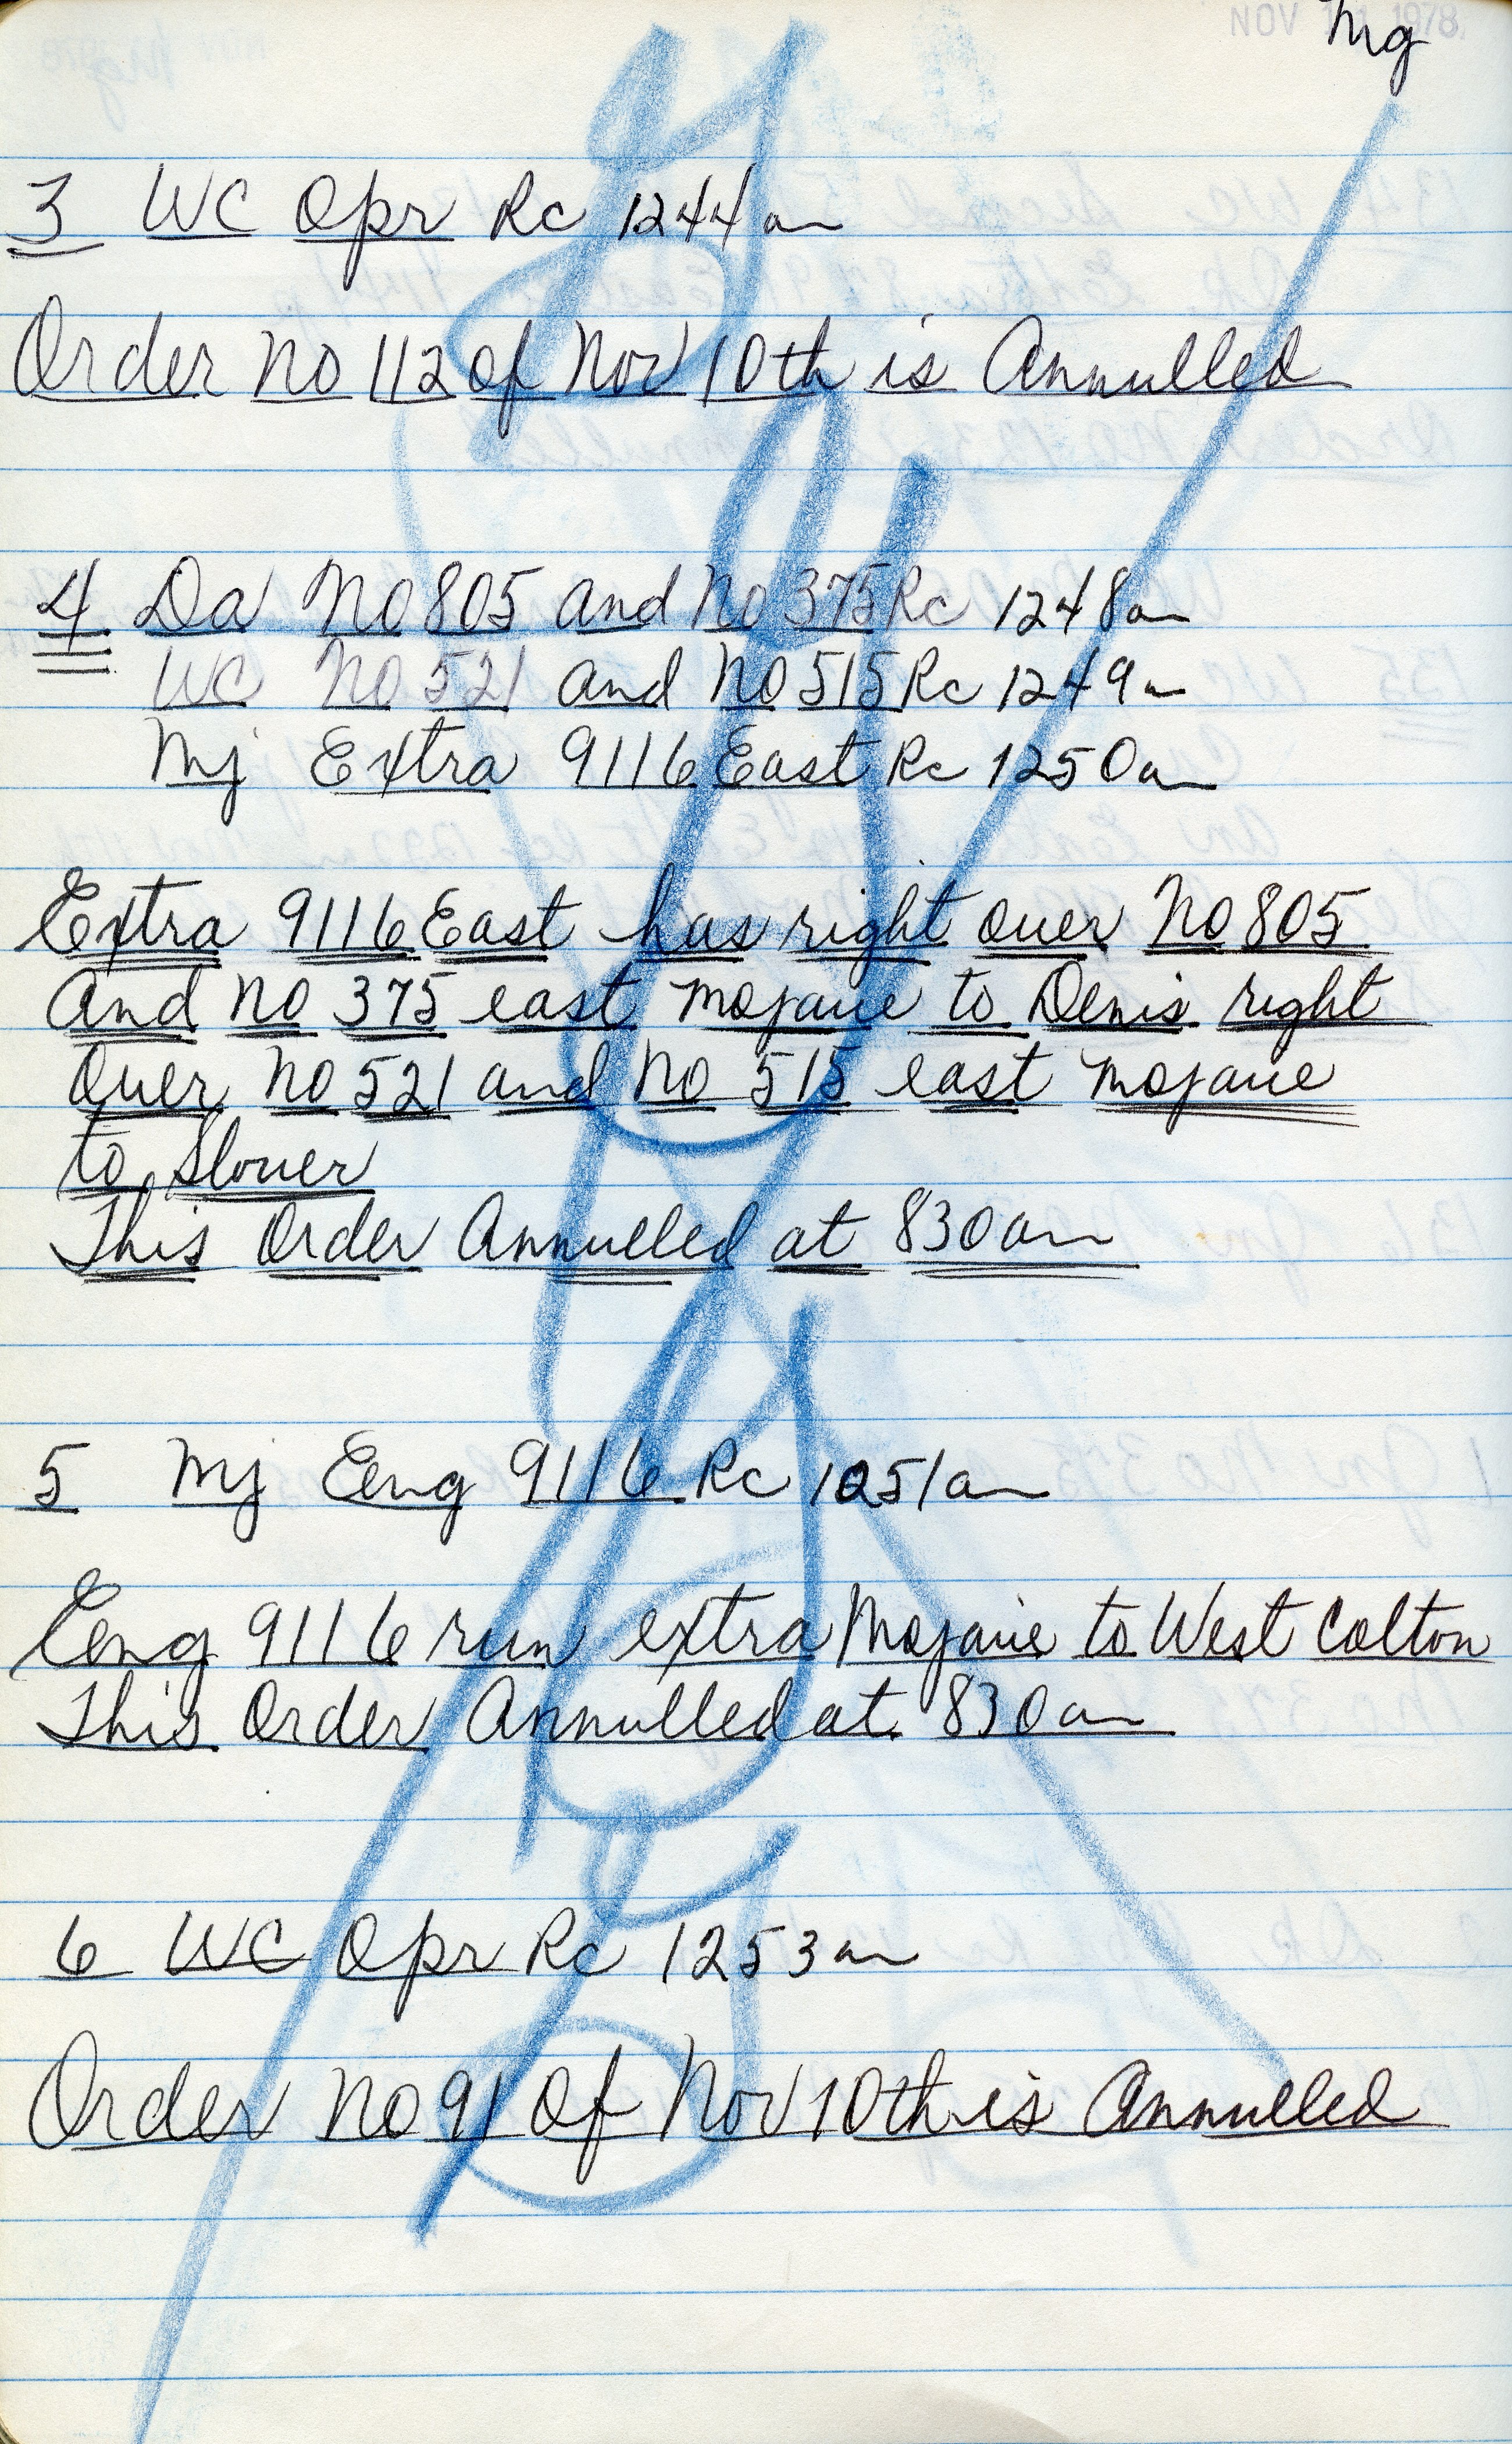 NOV 11 1978
mg
3 WC Opr Rc 1244am
Order No 112 of Nov 10th is Annulled
4 Da No 805 and No 375 Rc 1248am
WC No 521 and No 515 Rc 1249am
Mj Extra 9116 East Rc 1250am
Extra 9116 East has right over No 805
And No 375 east Mojave to Denis right
Over No 521 and No 515 east Mojave
to Slover
This Order Annulled at 830am
5 Mj Eng 9116 Rc 1251am
Eng 9116 run extra Mojave to West Colton
This Order Annulled at 830am
6 WC Opr Rc 1253am
Order No 91 Of Nov 10th is Annulled